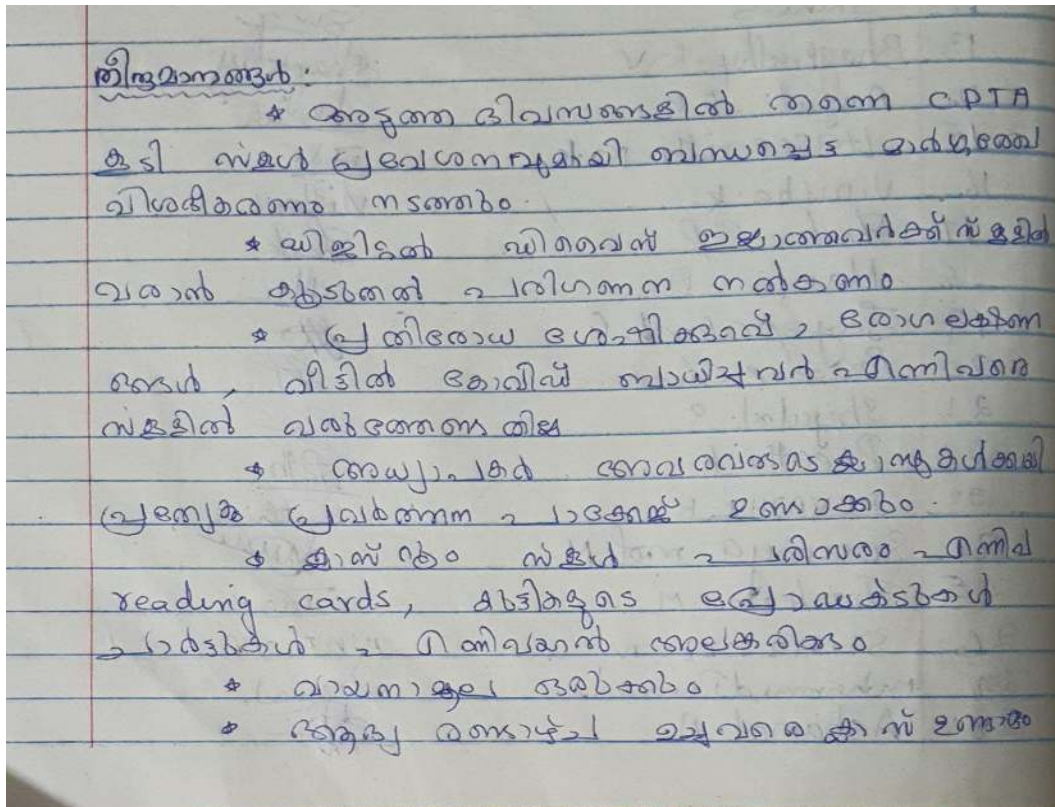 തീരുമാനങ്ങൾ :
* അടുത്ത ദിവസങ്ങളിൽ തന്നെ CPTA
കൂടി സ്കൂൾ പ്രവേശനവുമായി ബന്ധപ്പെട്ട മാർഗ്ഗരേഖ
വിശദീകരണം നടത്തും.
* ഡിജിറ്റൽ ഡിവൈസ് ഇല്ലാത്തവർക്ക് സ്കൂളിൽ
വരാൻ കൂടുതൽ പരിഗണന നൽകണം
* പ്രതിരോധ ശേഷിക്കുറവ്, രോഗലക്ഷണ
ങ്ങൾ, വീട്ടിൽ കോവിഡ് ബാധിച്ചവർ എന്നിവരെ
സ്കൂളിൽ വരുത്തേണ്ടതില്ല
* അധ്യാപകർ അവരവരുടെ ക്ലാസുകൾക്കായി
പ്രത്യേക പ്രവർത്തന പാക്കേജ് ഉണ്ടാക്കും.
* ക്ലാസ് റൂം സ്കൂൾ പരിസരം എന്നിവ
reading cards, കുട്ടികളുടെ പ്രോഡക്ടുകൾ
ചാർട്ടുകൾ എന്നിവയാൽ അലങ്കരിക്കും
* വായനാമൂല ഒരുക്കും
* ആദ്യ രണ്ടാഴ്ച ഉച്ചവരെ ക്ലാസ് ഉണ്ടാകും